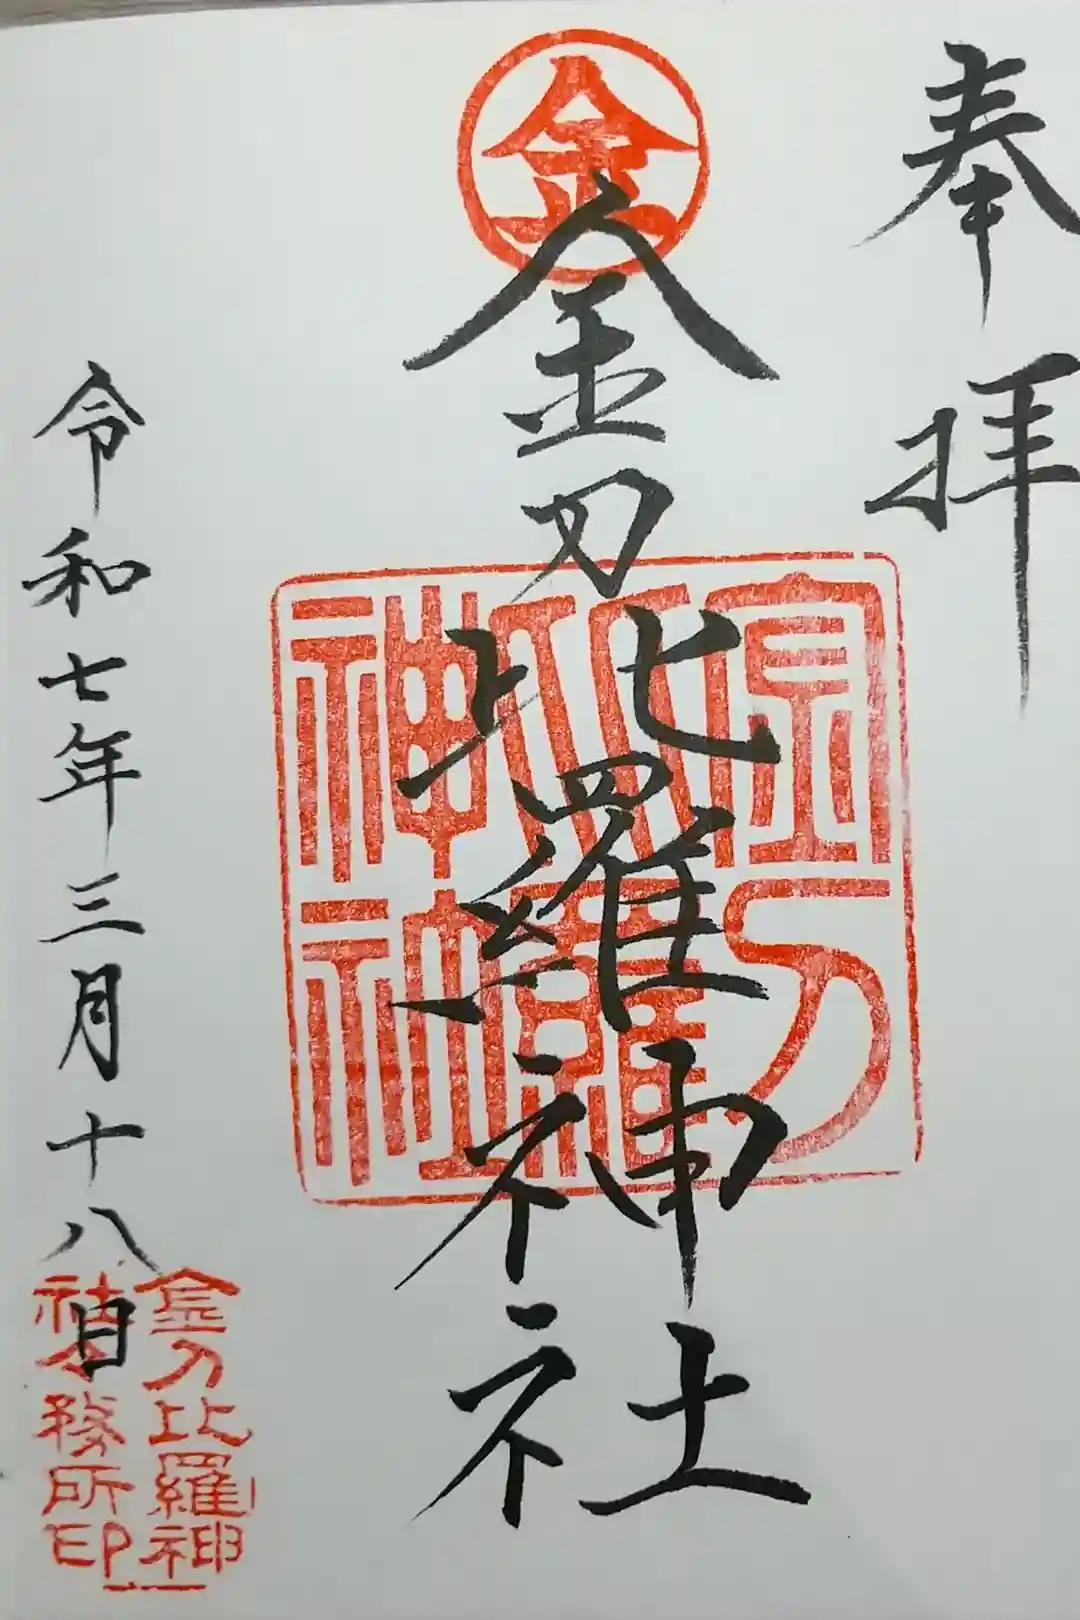 奉拝
金
金刀比羅神社
金刀比羅神神社
令和七年三月十八日
金刀比羅神
社社務所印